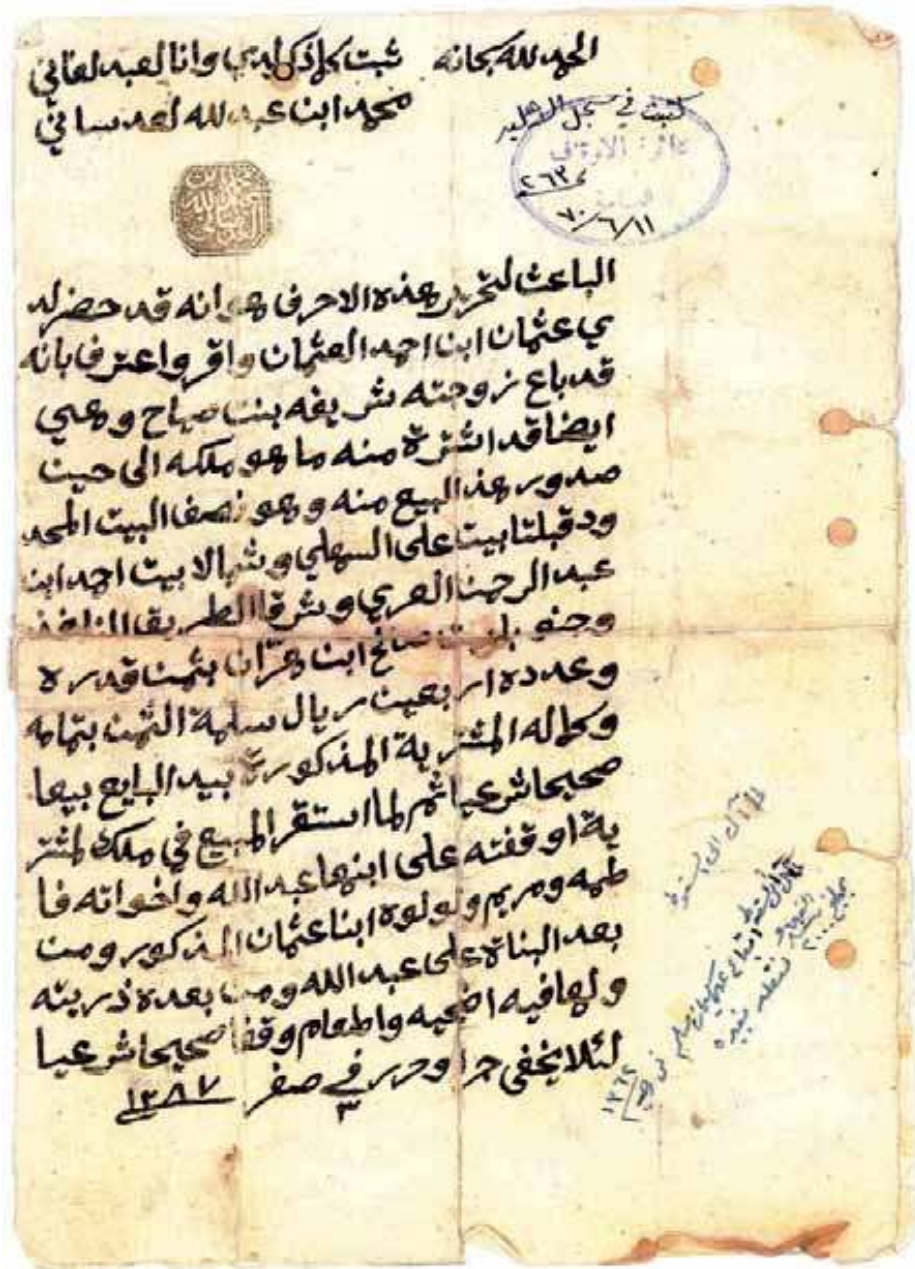 الحمد لله سبحانه
ثبت كلما ذكر لدي وانا العبد الفاني
محمد ابن عبد لله العدساني
ثبت في سجل
دائرة الاوقاف
٢٦٣
٧٠/٦/١١
الباعث لتحرير هذه الاحرف هو انه قد حضر لد
ي عثمان ابن احمد العثمان واقر واعترف بانه
قد باع زوجته شريفه بنت صباح وهي
ايضا قد اشترة منه ما هو ملكه الى حين
صدور هذ البيع منه وهو نصف البيت المحد
ود قبلتا بيت على السهلي وشمالا بيت احمد ابن
عبد الرحمن وشرقا الطريق النافذ
وجنوبا بيت صالح ابن بثمن قدره
وعدده اربعين ريال سلمة الثمن بتمامه
وكماله المشترية المذكورة بيد البايع بيعا
صحيحا شرعيا ثم لما استقر المبيع في ملك لمشتر
ية اوقفته على ابنها عبد الله واخواته فا
طمه ومريم ولولوة ابنا عثمان المذكور ومن
بعد البناة على عبد الله ومن بعده ذريته
ولها فيه اضحيه واطعام وقفا صحيحا شرعيا
لئلا يخفى جرا وحرر في ٣ صفر ١٢٨٧